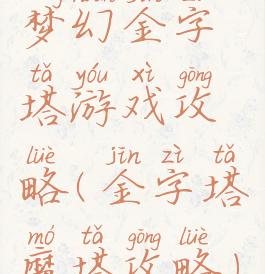 梦幻金字
tǎ yóu xì gōng
塔游戏攻
lüè jīn zì tǎ
略(金字塔
mó tǎ gōng lüè
魔塔攻略)